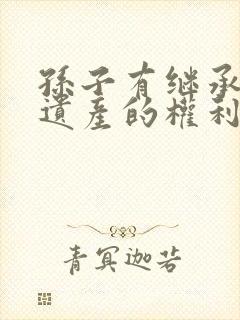 孫子有继承
遺產的權利
青冥迦若